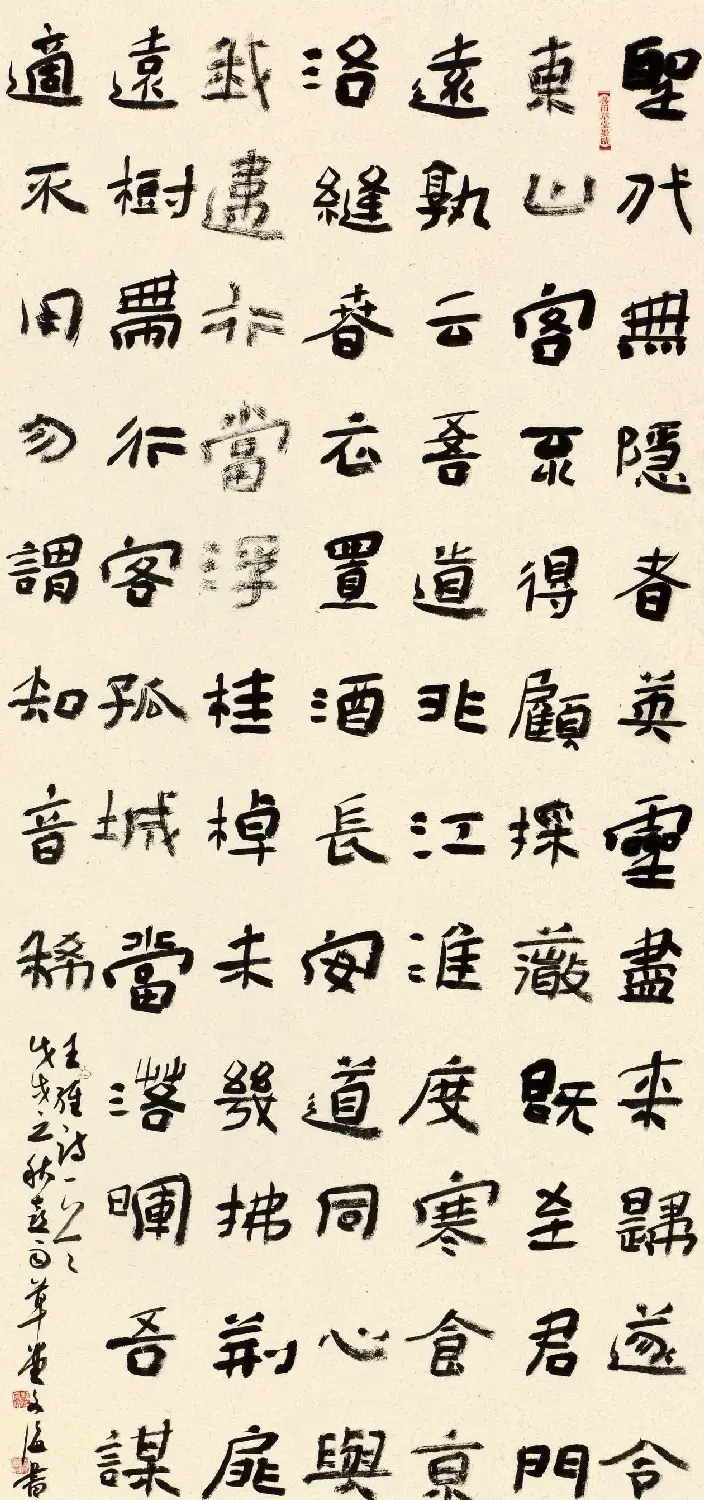 聖代無隱者英靈盡来歸遂令
東山客不得顧採薇既至君門
遠孰云吾道非江淮度寒食京
洛縫春衣置酒長安道同心與
我違行當浮桂棹未幾拂荆扉
遠樹帶行客孤城當落暉吾謀
適不用勿謂知音稀
王維诗一首
戊戌之秋喜雨草堂文書